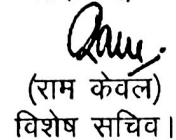 (राम केवल)
विशेष सचिव।